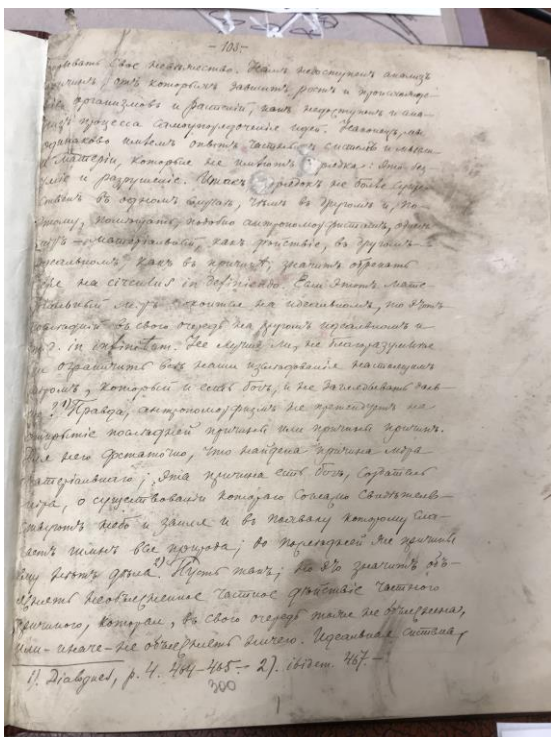 - 103. -
свое невѣжество. Намъ недоступенъ анализъ
причинъ, отъ которыхъ зависитъ ростъ и происхожде-
организмовъ и растеній, какъ недоступенъ и ана-
лизъ процесса самоупорядоченія идей. Наконецъ, мы
одинаково имѣемъ опытъ частныхъ системъ и
матеріи, которые не имѣютъ порядка: это без
и разрушеніе. Итакъ порядокъ не болѣе сущес-
въ одномъ случаѣ, чѣмъ въ другомъ и, по-
этому, помѣщать, подобно антропоморфистамъ, одинъ
матеріальный, какъ дѣйствіе, въ другомъ -
идеальномъ, какъ въ причинѣ, значитъ обрекать
на circulus in definiendo. Если этотъ мате-
ріальный міръ покоится на идеальномъ, то этотъ
послѣдній въ свою очередь на другомъ идеальномъ и
т. д. in infinitum. Не лучше ли, не благоразумнѣе
ли ограничить всѣ наши изслѣдованія настоящимъ
міромъ, который и есть богъ, и не заглядывать даль-
ше? 1) Правда, антропоморфизмъ не претендуетъ на
открытіе послѣдней причины или причины причинъ.
Для него достаточно, что найдена причина міра
матеріальнаго; эта причина есть богъ, создатель
міра, о существованіи котораго согласно свидѣтель-
ствуютъ небо и земля и въ похвалу которому
гимны вся природа; до послѣдней же причины
ему нѣтъ дѣла. 2) Пусть такъ; но это значитъ объ-
яснять необъясненное частное дѣйствіе частною
причиною, которая, въ свою очередь также не объяснена,
или - иначе - не объяснять ничего. Идеальная система,
1). Dialogues, p. 4. 464-465. - 2). ibidem. 467. -
300